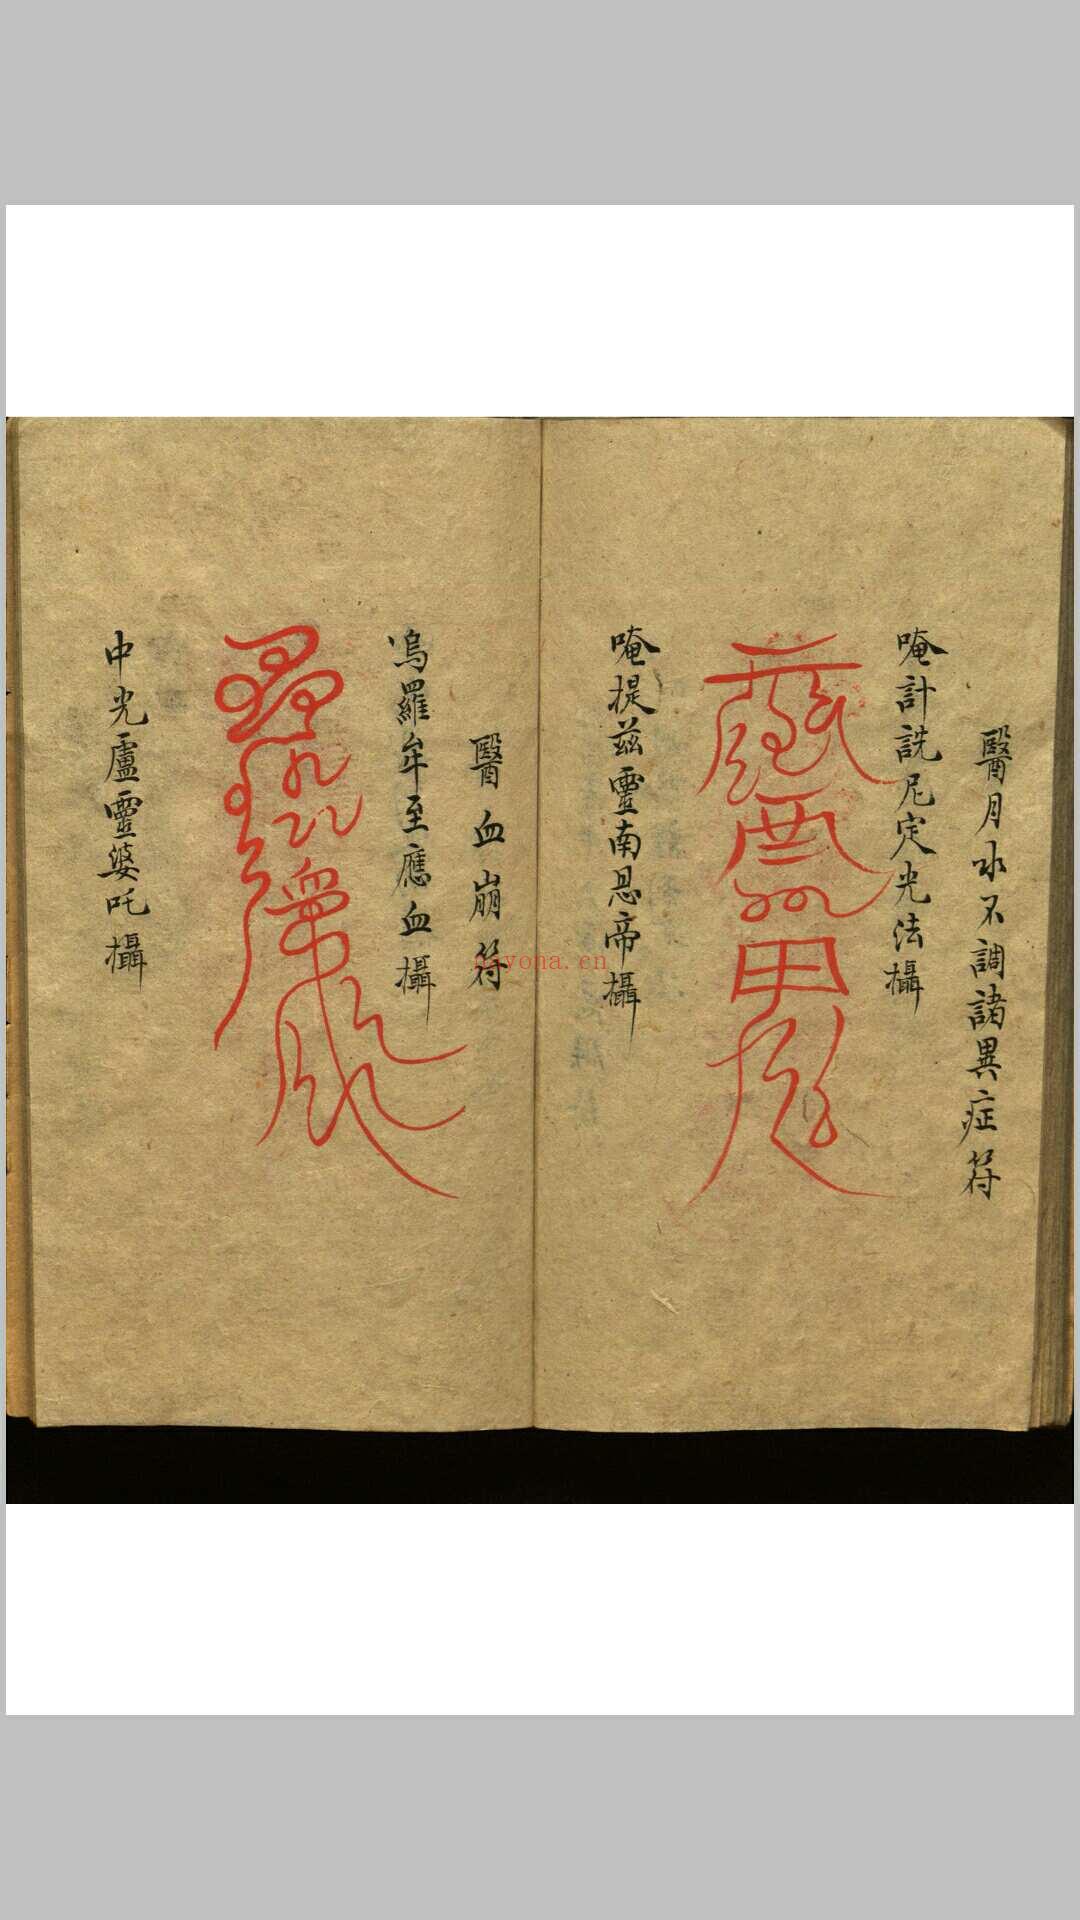 醫月水不調諸異症符
唵計詵尼定光法攝
唵提茲靈南恩帝攝
醫血崩符
嗚羅牟至應血攝
中光盧靈婆吒攝
nayona.cn